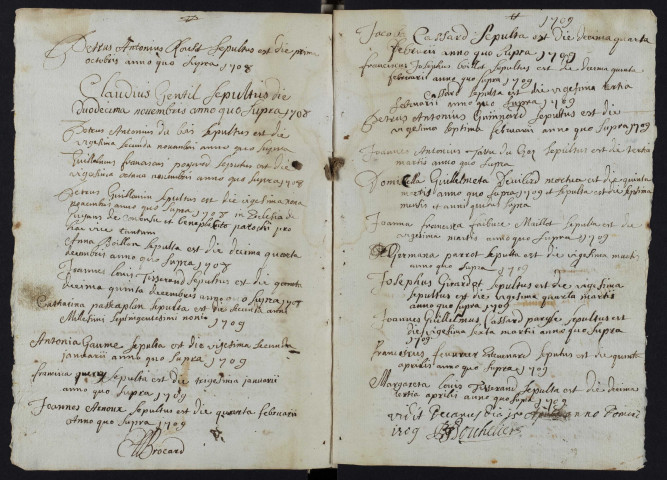 Petrus Antonius sepultus est die prima
octobris anno quo supra 1708
Claudius Gentil Sepultus die
duodecima novembris anno quo Supra 1708
Petrus Antonius du bois sepultus est die
vigesima secunda novembris anno quo supra
Guillelmus franciscus sepultus est die
vigesima octava novembris anno quo supra 1708
Petrus Guillemin sepultus est die vigesima nona
novembris anno quo supra 1708 in Ecclesia de
de et beneplacito parochi pro
hac vice tantum
Anna Boillon sepulta est die decima quarta
decembris anno quo supra 1708
Joannes Louis Tisserand sepultus est die
decima quinta decembris anno quo supra 1708
Catharina sepulta est die secunda anni
Millesimi Septingentesimi noni 1709
Antonia Gaume sepulta est die vigesima secunda
januarii anno quo supra 1709
francisca sepulta est die trigesima januarii
anno quo supra 1709
Joannes Arnoux sepultus est die quarta februarii
Anno quo supra 1709
Brocard
1709
Cassard Sepulta est die decima quarta
februarii anno quo supra 1709
franciscus Josephus Boillot sepultus est die decima quinta
februarii anno quo supra 1709
Cassard sepulta est die vigesima tertia
februarii anno quo supra 1709
Petrus Antonius sepultus est die
vigesima septima februarii anno quo supra 1709
Joannes Antonius sepultus est die tertia
martis anno quo supra
Guillelmeta est die quinta
martis anno quo supra 1709 et sepulta est die septima
martis et anni quo supra
Joanna francisca Maillot sepulta est die
vigesima martis anno quo supra 1709
Germana parrot sepulta est die vigesima martis
anno quo supra 1709
Josephus Girardot sepultus est die vigesima
sepultus est die vigesima quarta martis
anno quo supra 1709
Joannes Guillelmus Cassard sepultus est
die vigesima sexta martis anno quo supra
1709
franciscus sepultus est die quinta
aprilis anno quo supra 1709
Margareta Louis Tisserand sepulta est die decima
tertia aprilis anno quo supra 1709
vidit Decanus die anno Domini
1709 Bouhelier